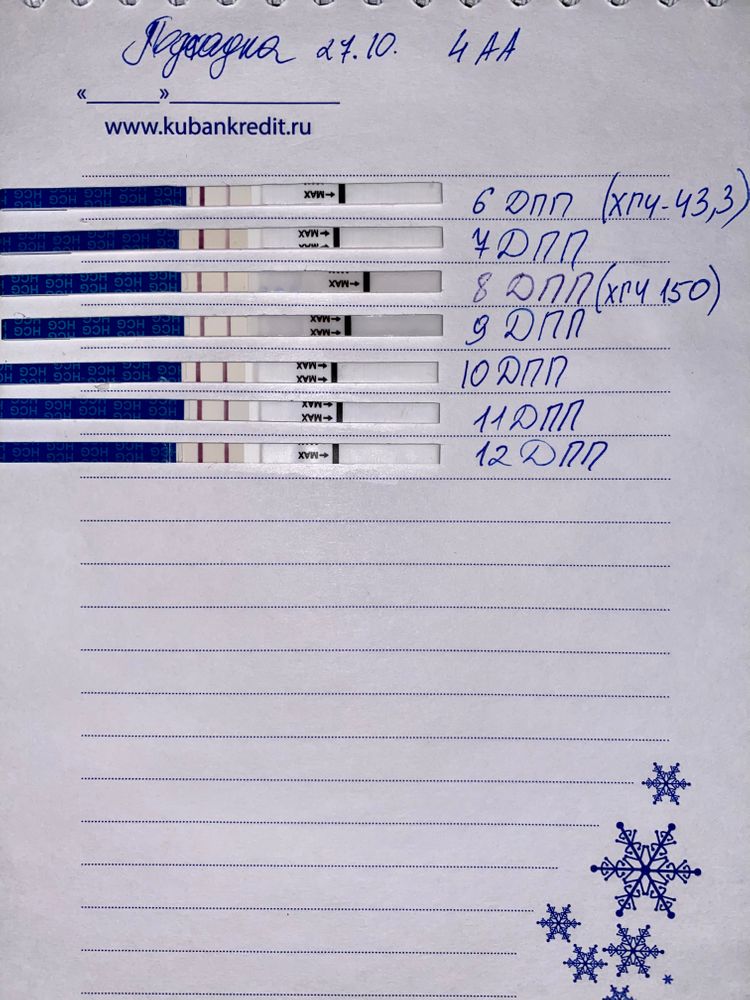 Подсадка 27.10. 4АА
« » 
www.kubankredit.ru
HCG HCG HCG HCG ←MAX 6 ДПП (ХГЧ-43,3)
HCG HCG HCG HCG ←MAX 7 ДПП
HCG HCG HCG HCG ←MAX 8 ДПП (ХГЧ 150)
HCG HCG HCG HCG ←MAX ←MAX 9 ДПП
HCG HCG HCG HCG ←MAX ←MAX 10 ДПП
HCG HCG HCG HCG ←MAX ←MAX 11 ДПП
HCG HCG HCG HCG ←MAX 12 ДПП